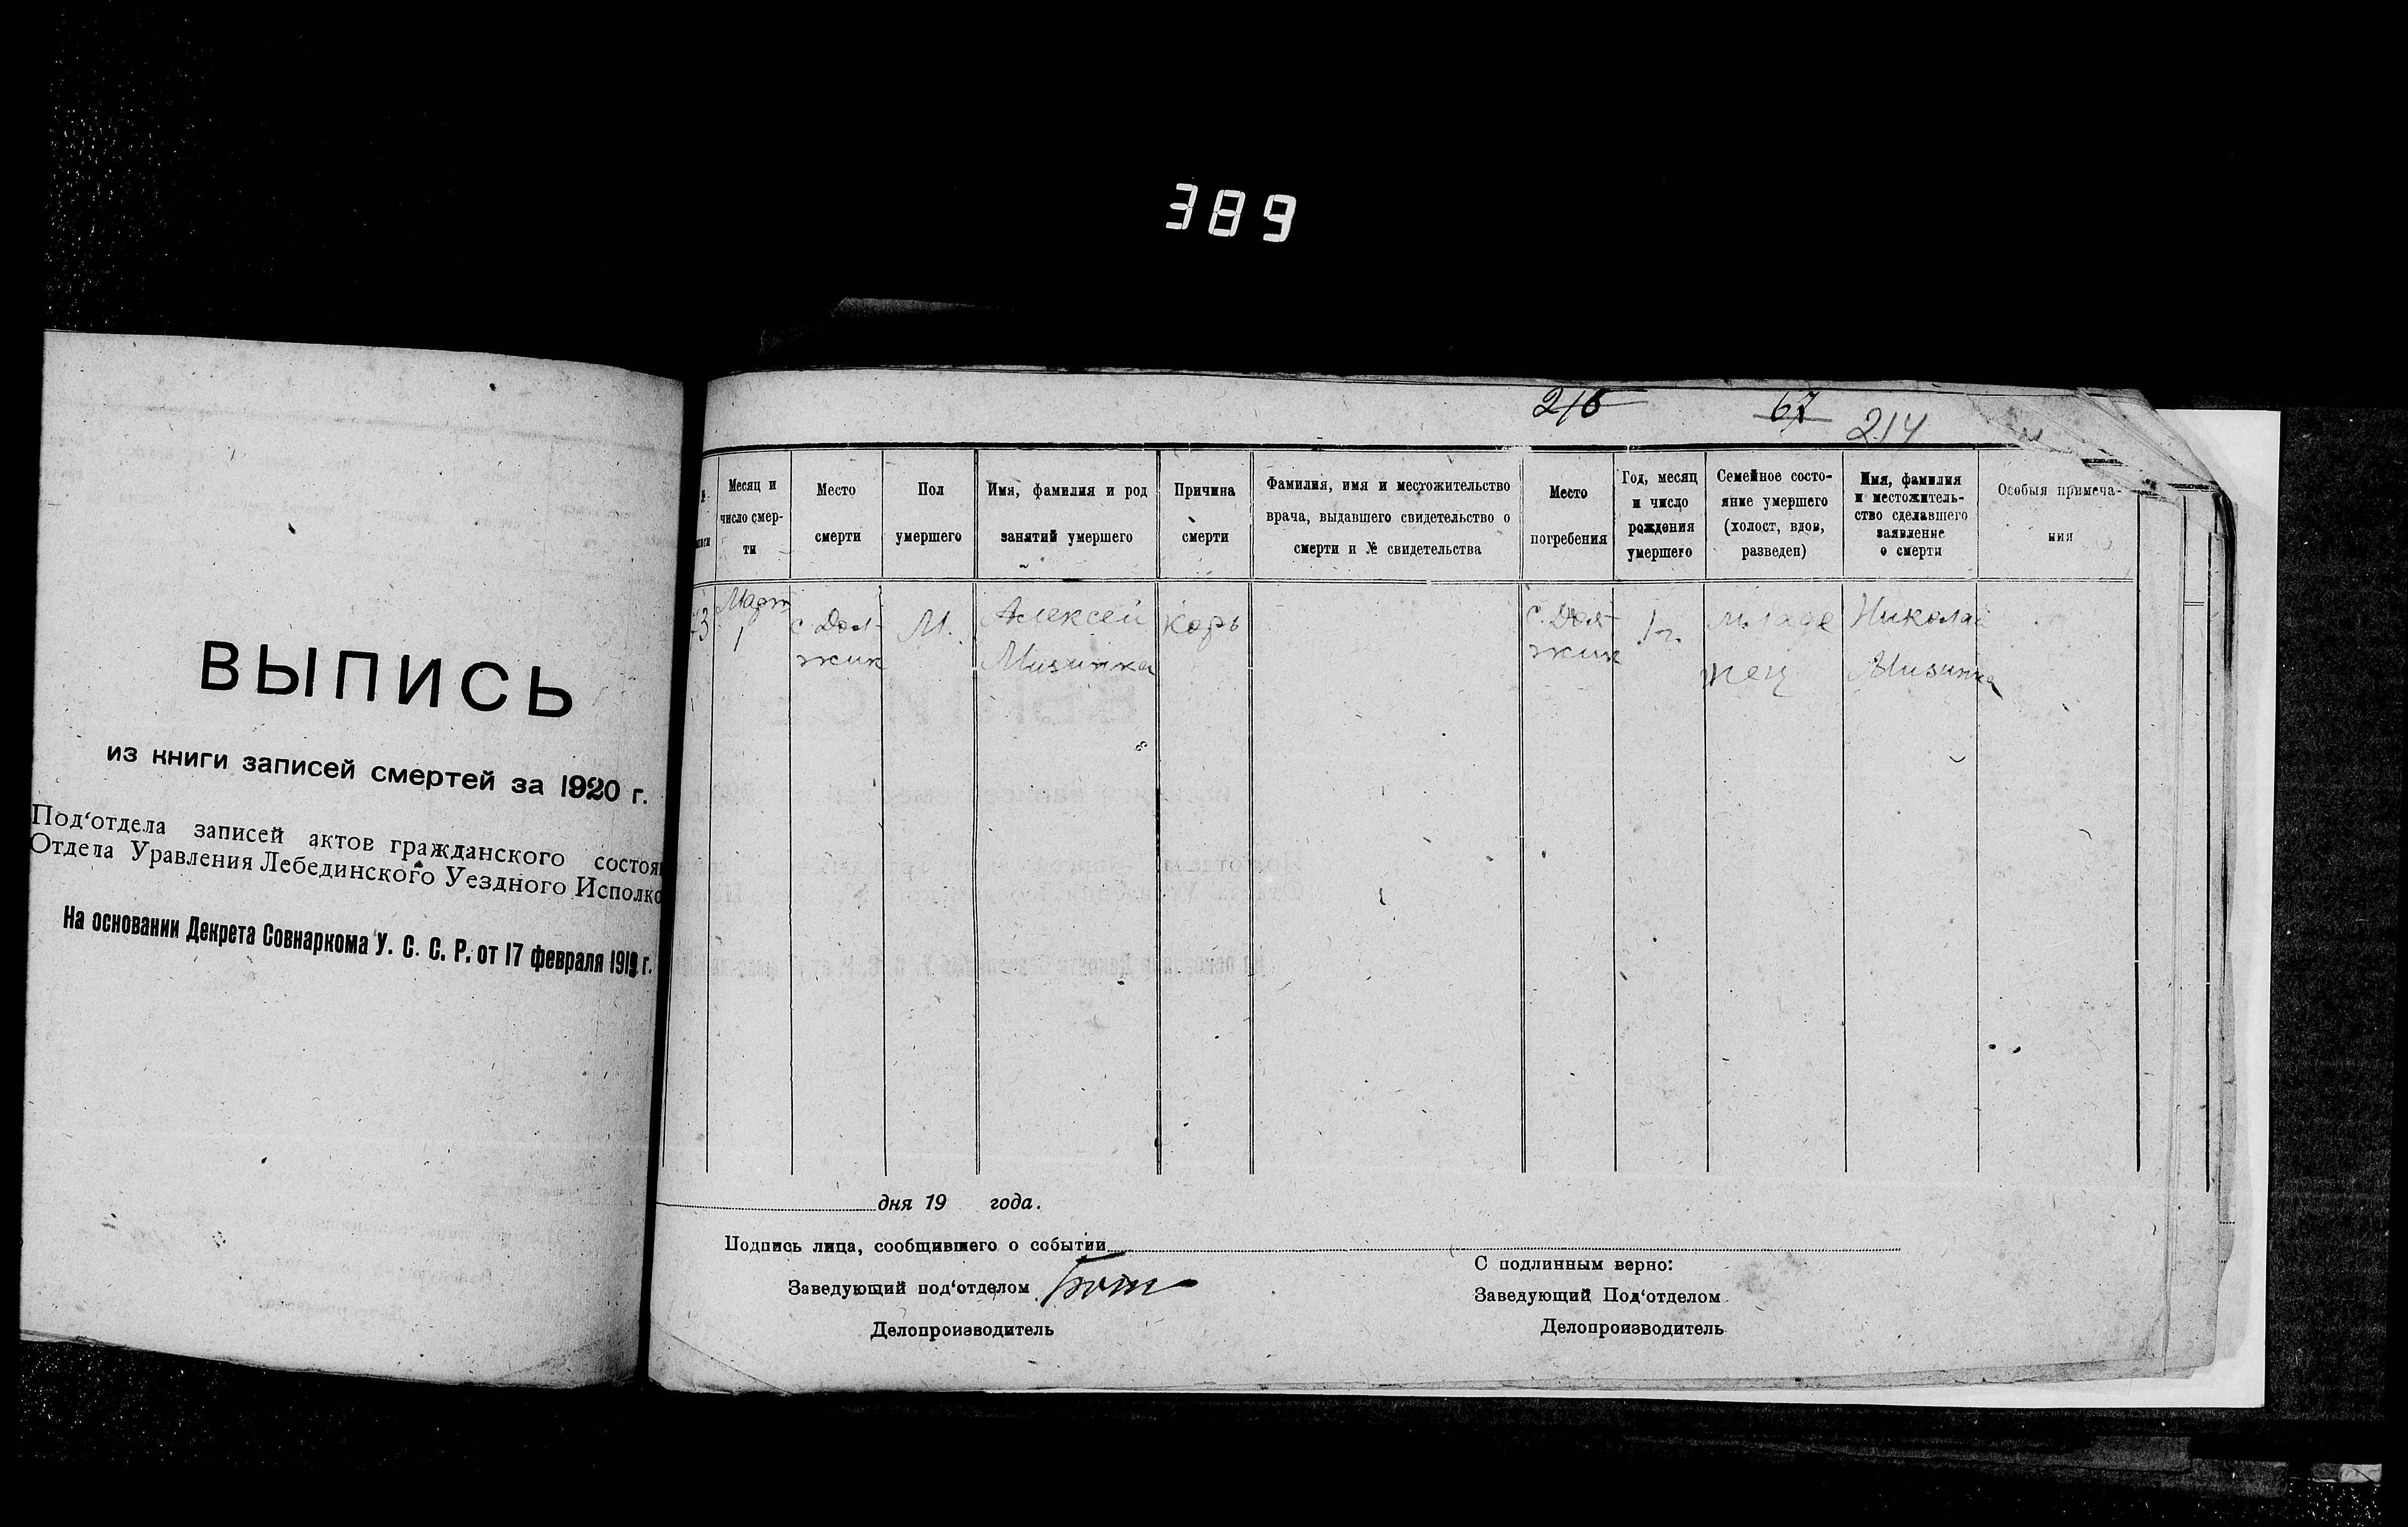 389
ВЫПИСЬ
из книги записей смертей за 1920 г.
Под‘отдела записей актов гражданского состоя
Отдела Уравления Лебединского Уездного Исполко
На основании Декрета Совнаркома У. С. С. Р. от 17 февраля 1919 г.
216 67 214
Месяц и число смерти
Место смерти
Пол умершего
Имя, фамилия и род занятий умершего
Причина смерти
Фамилия, имя и местожительство врача, выдавшего свидетельство о смерти и № свидетельства
Место погребения
Год, месяц и число рождения умершего
Семейное состояние умершего (холост, вдов, разведен)
Имя, фамилия и местожительство сделавшего заявление о смерти
Особыя примечания
Март 1
с. Должик
М.
Алексей Мизинка
Корь
с. Должик
1 г.
младенец
Николай Мизинка
дня 19 года.
Подпись лица, сообщившего о событии
Заведующий под‘отделом
Делопроизводитель
С подлинным верно:
Заведующий Под‘отделом
Делопроизводитель